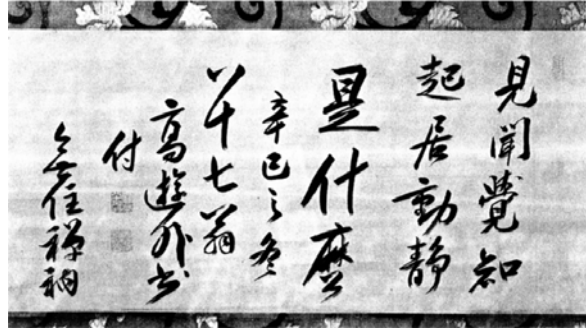 見聞覺知
起居動靜
是什麼
辛巳之冬
八十七翁
高遊外書
付
住禪衲